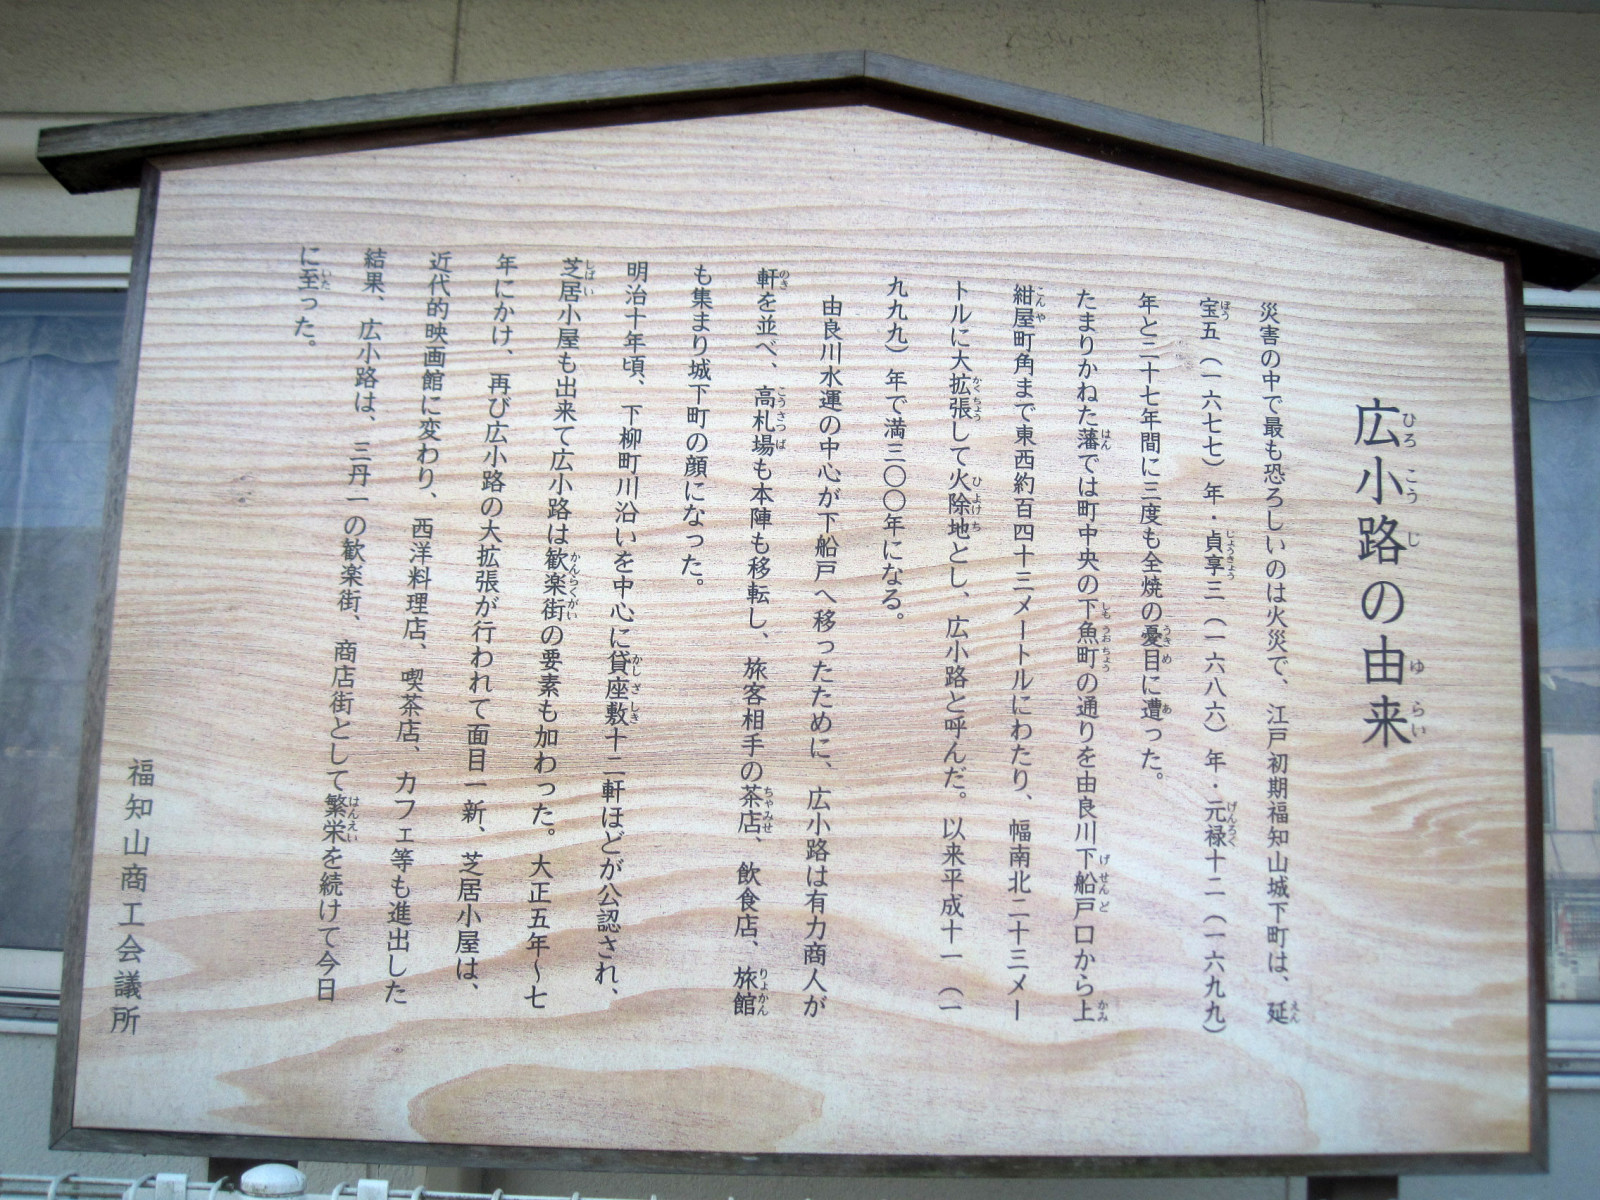 広小路の由来
災害の中で最も恐ろしいのは火災で、江戸初期福知山城下町は、延
宝五（一六七七）年・貞享三（一六八六）年・元禄十二（一六九九）
年と二十七年間に三度も全焼の憂目に遭った。
たまりかねた藩では町中央の下魚町の通りを由良川下船戸口から上
紺屋町角まで東西約百四十三メートルにわたり、幅南北二十三メー
トルに大拡張して火除地とし、広小路と呼んだ。以来平成十一（一
九九九）年で満三〇〇年になる。
由良川水運の中心が下船戸へ移ったために、広小路は有力商人が
軒を並べ、高札場も本陣も移転し、旅客相手の茶店、飲食店、旅館
も集まり城下町の顔になった。
明治十年頃、下柳町川沿いを中心に貸座敷十二軒ほどが公認され、
芝居小屋も出来て広小路は歓楽街の要素も加わった。大正五年〜七
年にかけ、再び広小路の大拡張が行われて面目一新、芝居小屋は、
近代的映画館に変わり、西洋料理店、喫茶店、カフェ等も進出した
結果、広小路は、三丹一の歓楽街、商店街として繁栄を続けて今日
に至った。
福知山商工会議所